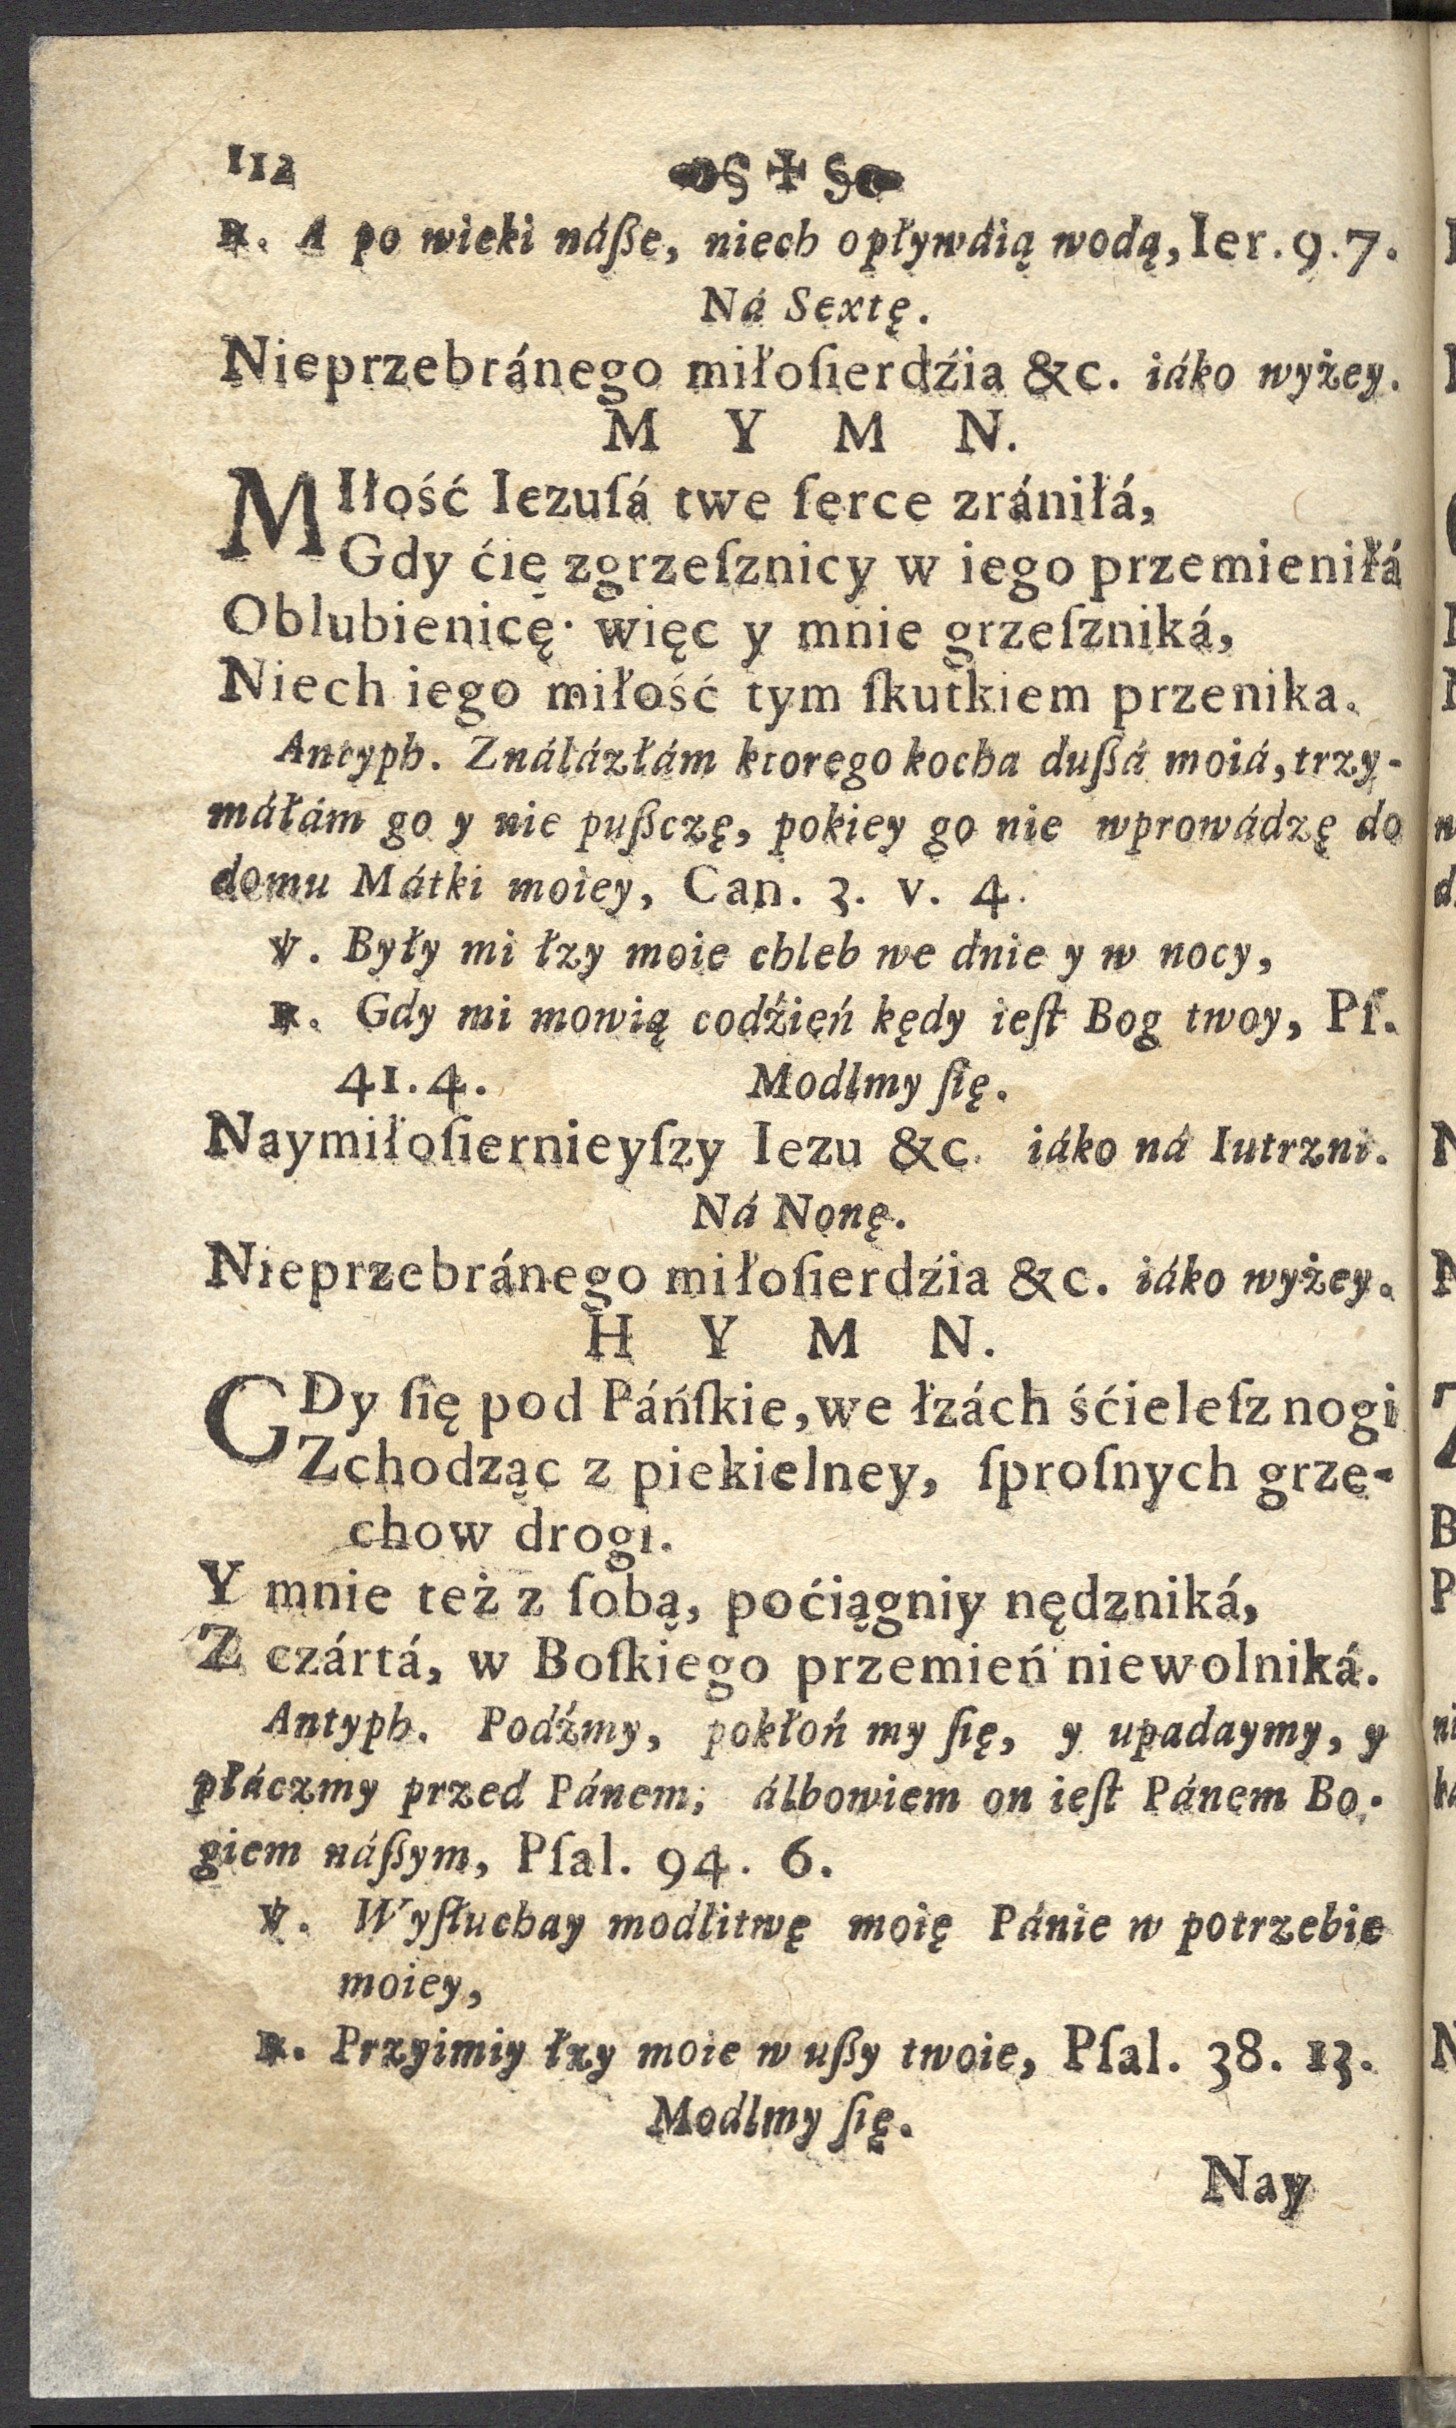 112 §✠§
℟. A po wieki náße, niech opływáią wodą, Ier. 9. 7.
Ná Sextę.
Nieprzebránego miłoſierdźia &c. iáko wyżey.
M Y M N.
MIłość Iezuſá twe ſerce zrániłá,
Gdy ćię zgrzeſznicy w iego przemieniłá
Oblubienicę· więc y mnie grzeſzniká,
Niech iego miłość tym ſkutkiem przenika.
Antyph.Ználázłám ktorego kocha dußá moiá, trzy-
máłám go y nie pußczę, pokiey go nie wprowádzę do
domu Mátki moiey, Can. 3. v. 4.
℣. Były mi łzy moie chleb we dnie y w nocy,
℟. Gdy mi mowią codźień kędy ieſt Bog twoy, Pſ.
41. 4. Modlmy ſię.
Naymiłoſiernieyſzy Iezu &c. iáko ná Iutrzni.
Ná Nonę.
Nieprzebránego miłoſierdźia &c. iáko wyżey.
H Y M N.
GDy ſię pod Páńſkie, we łzách śćieleſz nogi
Zchodząc z piekielney, ſproſnych grze-
chow drogi.
Y mnie też z ſobą, poćiągniy nędzniká,
Z czártá, w Boſkiego przemień niewolniká.
Antyph. Podźmy, pokłoń my ſię, y upadaymy, y
płáczmy przed Pánem; álbowiem on ieſt Pánem Bo-
giem náßym, Pſal. 94. 6.
℣. Wyſłuchay modlitwę moię Pánie w potrzebie
moiey,
℟. Przyimiy łzy moie w ußy twoie, Pſal. 38. 13.
Modlmy ſię.
Nay